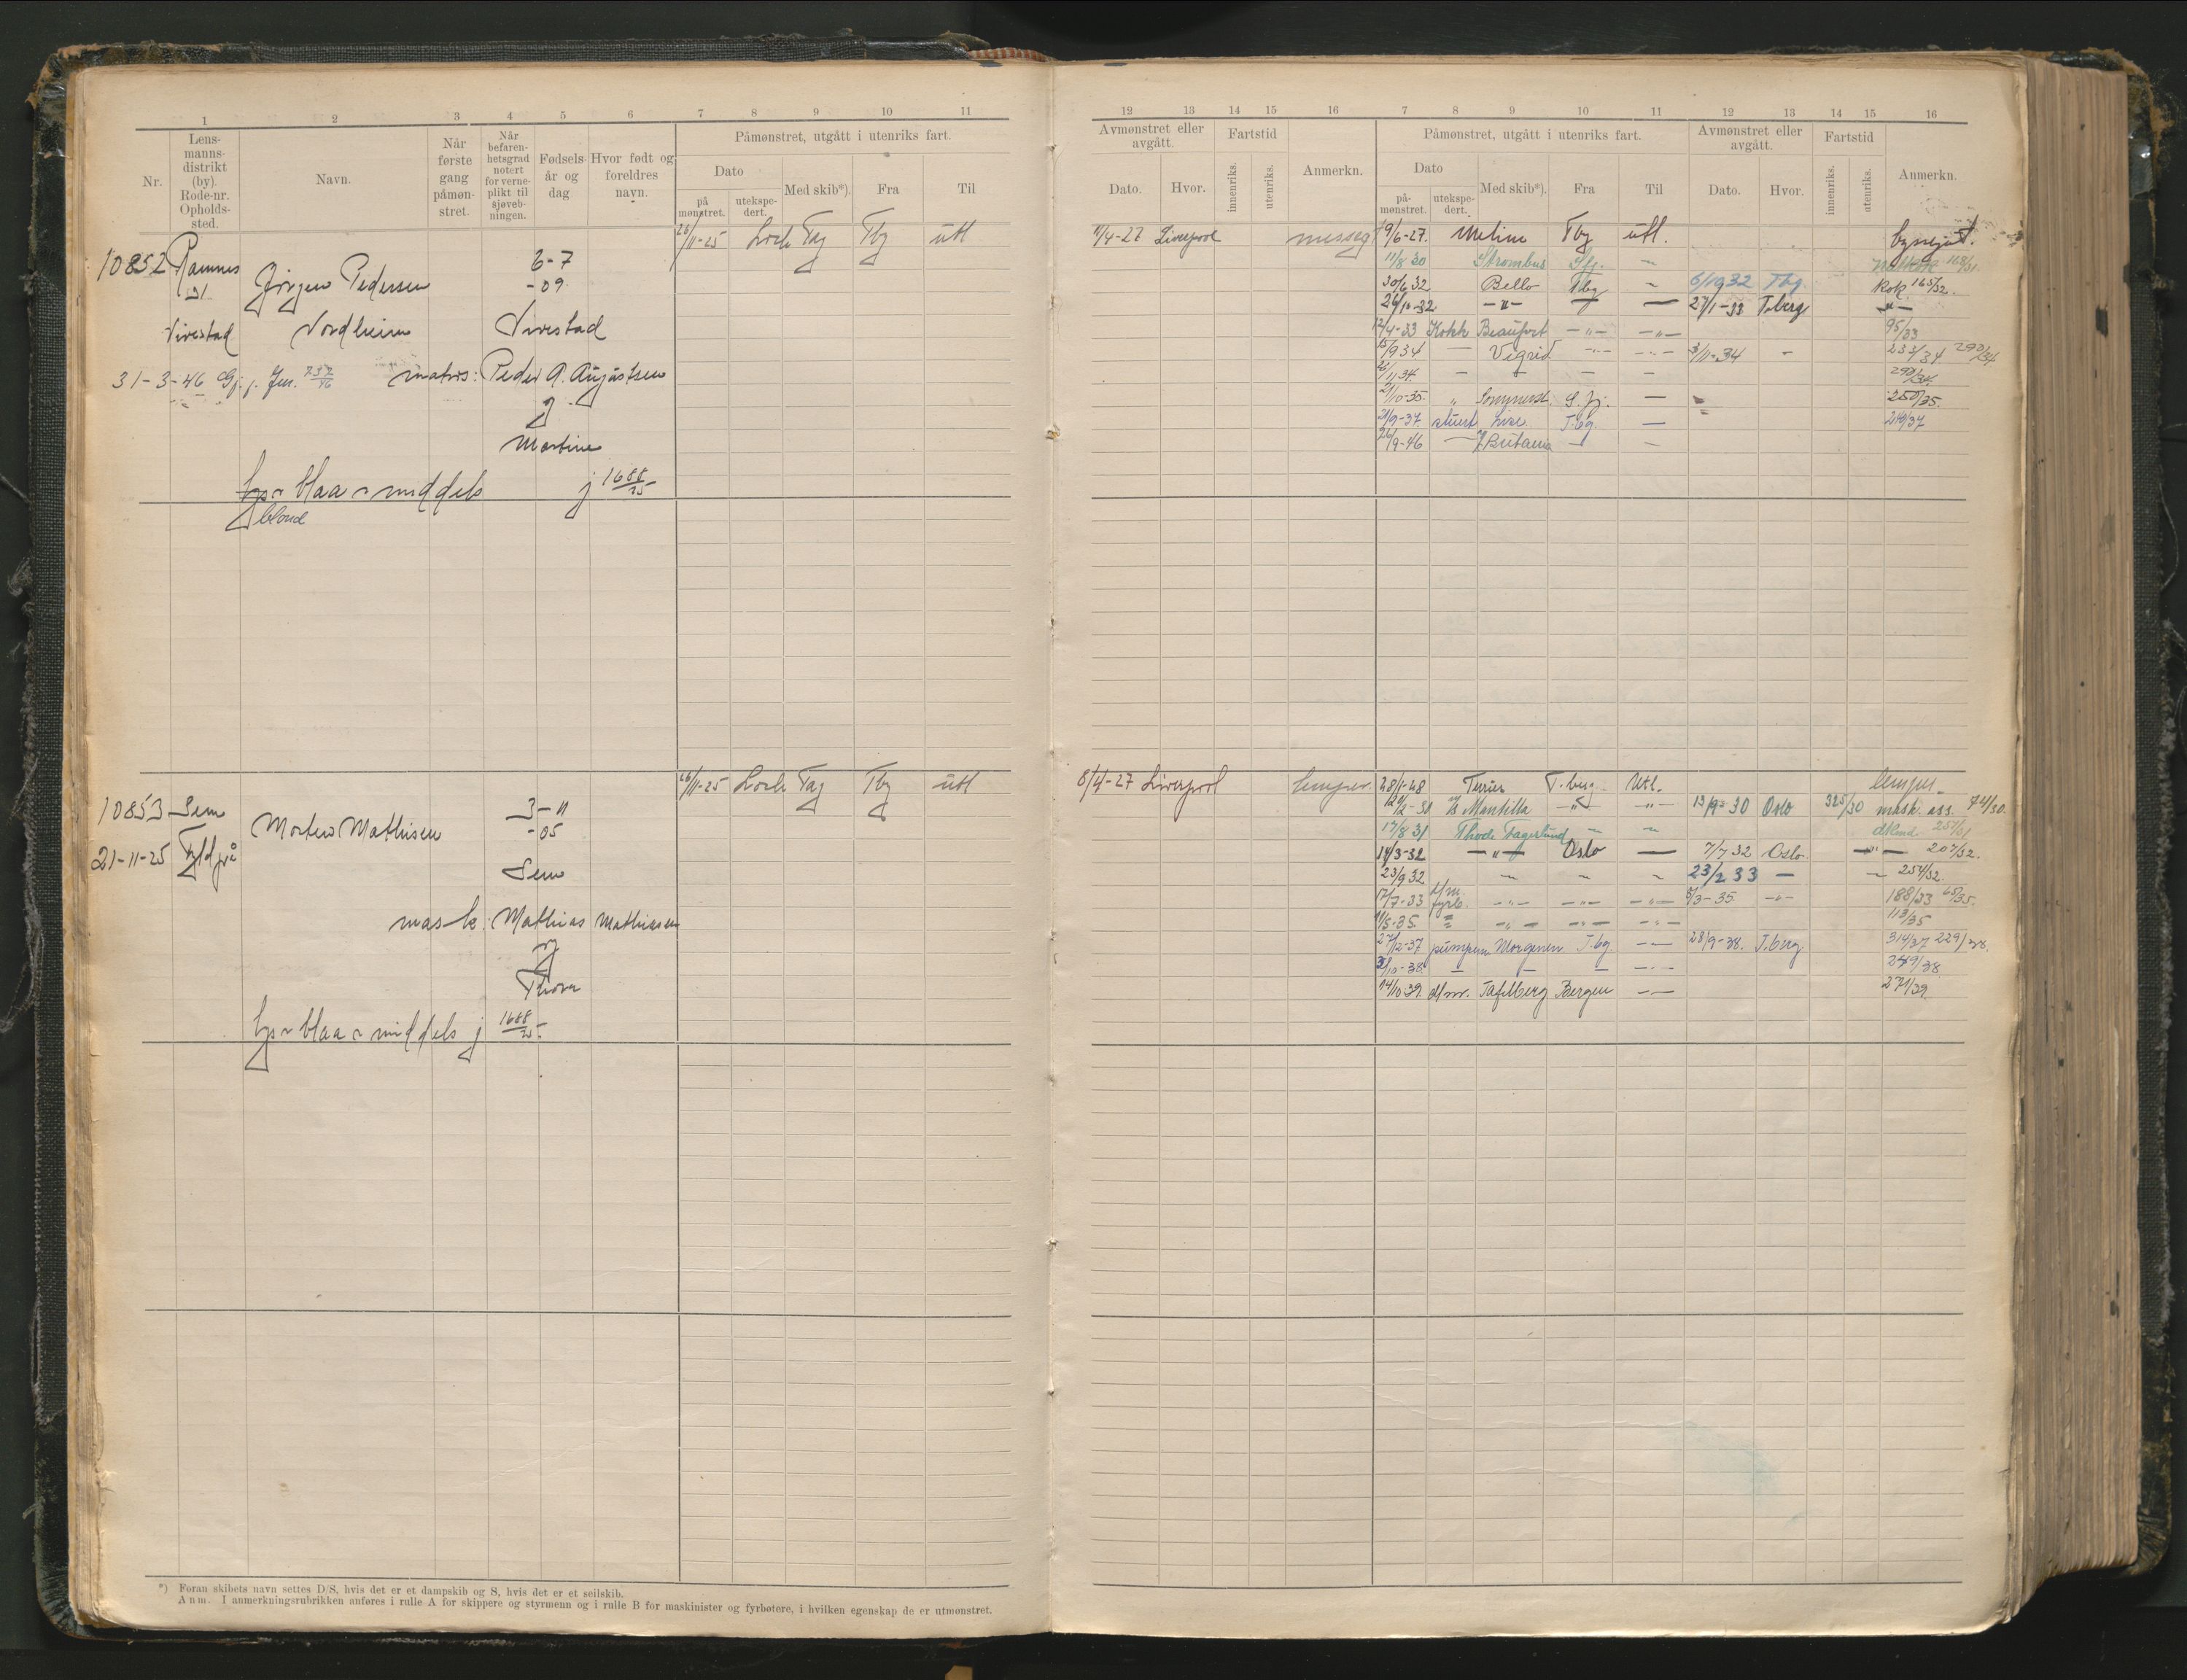 1 2 3 4 5 6 7 8 9 10 11
Nr.
Lens-
manns-
distrikt
(by).
Rode-nr.
Opholds-
sted.
Navn.
Når
første
gang
påmøn-
stret.
Når
befaren-
hetsgrad
notert
for verne-
plikt til
sjøveb-
ningen.
Fødsels-
år og
dag
Hvor født og
foreldres
navn.
Påmønstret, utgått i utenriks fart.
Dato
på
mønstret.
utekspe-
dert.
Med skib*).
Fra
Til
10852 Ramnes
Jörgen Pedersen
6-7
-09
26/11-25 Loch Tay Tbg utl
Vivestad Nordheim Vivestad
31-3-46 matros: Peder A. Augustsen
g
Martine
lys ~ blaa ~ middels j 1688/25
blond
10853 Sem
Morten Mathisen
3-11
-05
26/11-25 Loch Tay Tbg utl
21-11-25
Sem
mask: Mathias Mathiassen
g
Thora
lys ~ blaa ~ middels j 1688/25
*) Foran skibets navn settes D/S, hvis det er et dampskib og S, hvis det er et seilskib.
Anm. I anmerkningsrubrikken anføres i rulle A for skippere og styrmenn og i rulle B for maskinister og fyrbøtere, i hvilken egenskap de er utmønstret.
12 13 14 15 16 7 8 9 10 11 12 13 14 15 16
Avmønstret eller
avgått.
Dato.
Hvor.
Fartstid
innenriks.
utenriks.
Anmerkn.
Påmønstret, utgått i utenriks fart.
Dato
på-
mønstret.
utekspe-
dert.
Med skib*).
Fra
Til
Avmønstret eller
avgått.
Dato.
Hvor.
Fartstid
innenriks.
utenriks.
Anmerkn.
11/4-27 Liverpool messeg 9/6-27. Meline Tbg utl.
11/8 30 Strombus Sfj. - 168/31
30/6 32 Bello Tbg - 6/10 32 Tbg. Kok 165/32.
26/10-32 -"- - - 27/1-33 T.berg -"-
12/4-33 Kokk Beaufort -"- -"- 95/33
15/9 34. - Vigrid -"- -"- 3/11-34 - 233/34 290/34
11 34. - - - - 290/34.
21/10-35. " S.fj. - 250/35.
21/9-37. stuert T.bg. - 249/37
26/9-46 - - -
8/4-27 Liverpool lemper 28/1-28 T.berg Utl. lemper
Mantilla -"- -"- 13/9 30 Oslo 325/30 mask. ass. 74/30.
17/8 31 Thode Fagerlund - - 257/31
14/3-32 -"- Oslo - 7/7 32 Oslo. -"- 207/32.
23/9 32 - - - 23/2 33 - - 254/32.
17/7-33 fyrb. -"- -"- -"- 5/3-35. -"- 188/33 65/35.
11/5-35. = -"- -"- -"- 113/35
27/12-37 pumpem. Morgenen T.bg. - 28/9-38. T.berg 314/37 229/38.
3/10-38. - - - - 249/38
14/10 39. dkm. Tafelberg Bergen - 271/39.